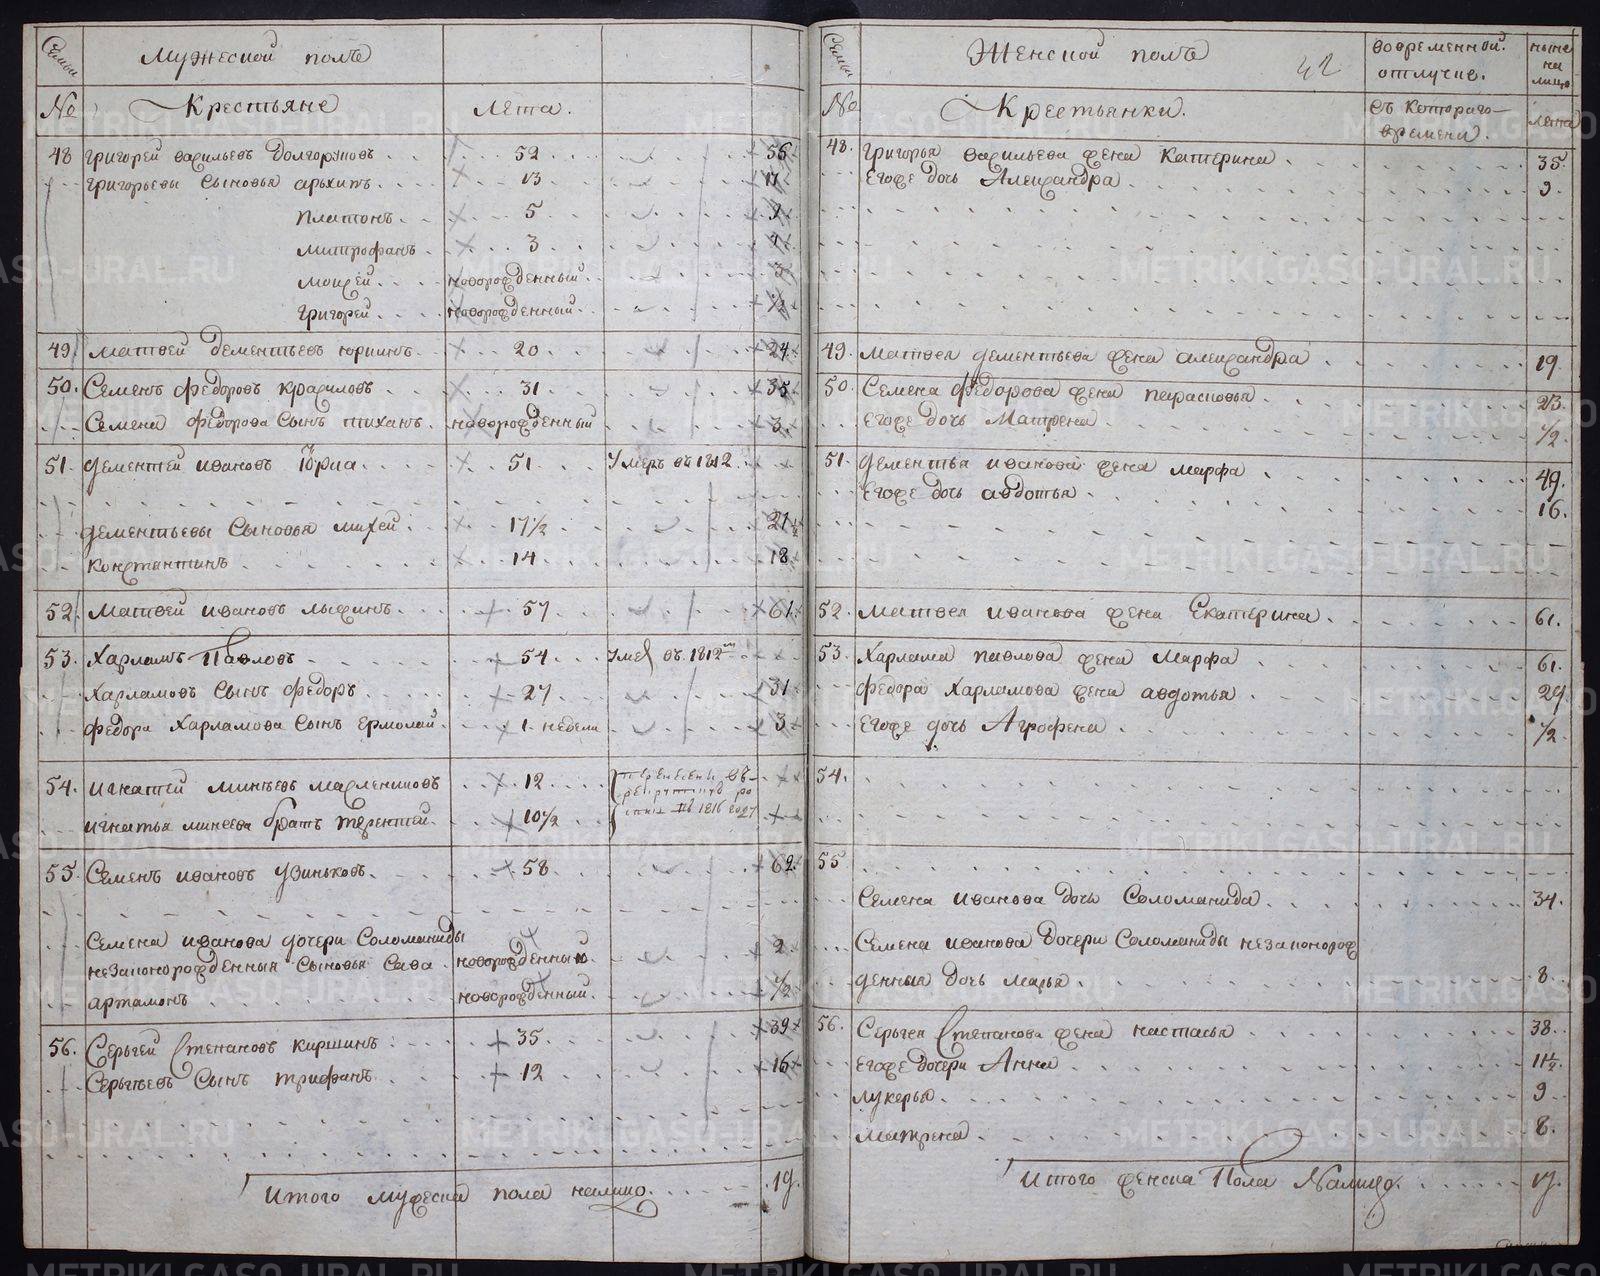 Семьи
Мужеской полъ
№
Крестьяне
Лета.
48 Григорей Васильевъ Долгоруковъ 52 56
Григорьевы Сыновья Архипъ 13 17
Платонъ 5 9
Митрофанъ 3 7
Моисей новорожденный 3
Григорей новорожденный ½
49 Матвей Дементьевъ Юркинъ 20 24
50. Семенъ Федоровъ Красиловъ 31 35
Семена Федорова Сынъ Тиханъ новорожденный 3
51. Дементей Ивановъ Юрка 51 Умеръ въ 1812
Дементьевы Сыновья Михей 17½ 21½
Константинъ 14 18
52 Матвей Ивановъ Лыжинъ 57 61
53. Харламъ Павловъ 54 Умер въ 1812м
Харламовъ Сынъ Федоръ 27 31
Федора Харламова Сынъ Ермолай 1 недели 3
54. Игнатей Минѣевъ 12
Игнатья Минеева братъ Терентей 10½ 1816 году
55. Семенъ Ивановъ Узиньковъ 58 62
Семена Иванова дочери Соломаниды
незаконорожденныя Сыновья Сава новорожденный 2
Артамонъ новорожденный ½
56. Сергей Степановъ Киршинъ 35 39
Сергѣевъ Сынъ Трифанъ 12 16
Итого мужеска пола налицо 19.
Семьи
Женской полъ
42
Вовременной
отлучке.
ныне
на
лицо
№
Крестьянки.
Съ Котораго
времени.
лета
48. Григорья Васильева жена Катерина 35
Егоже дочь Александра 9
49. Матвея Дементьева жена Александра 19
50. Семена Федорова жена Парасковья 23
Егоже дочь Матрена ½
51. Дементья Иванова жена Марфа 49.
Егоже дочь Авдотья 16.
52. Матвея Иванова жена Екатерина 61.
53. Харлама Павлова жена Марфа 61.
Федора Харламова жена Авдотья 29
Егоже дочь Агрофена ½
54.
55
Семена Иванова дочь Соломанида 34.
Семена Иванова дочери Соломаниды незаконорож
денная дочь Марья 8.
56. Сергея Степанова жена Настасья 38.
Егоже дочери Анна 11½
Лукерья 9
Матрена 8.
Итого женска Пола Налицо 17.
METRIKI.GASO-URAL.RU